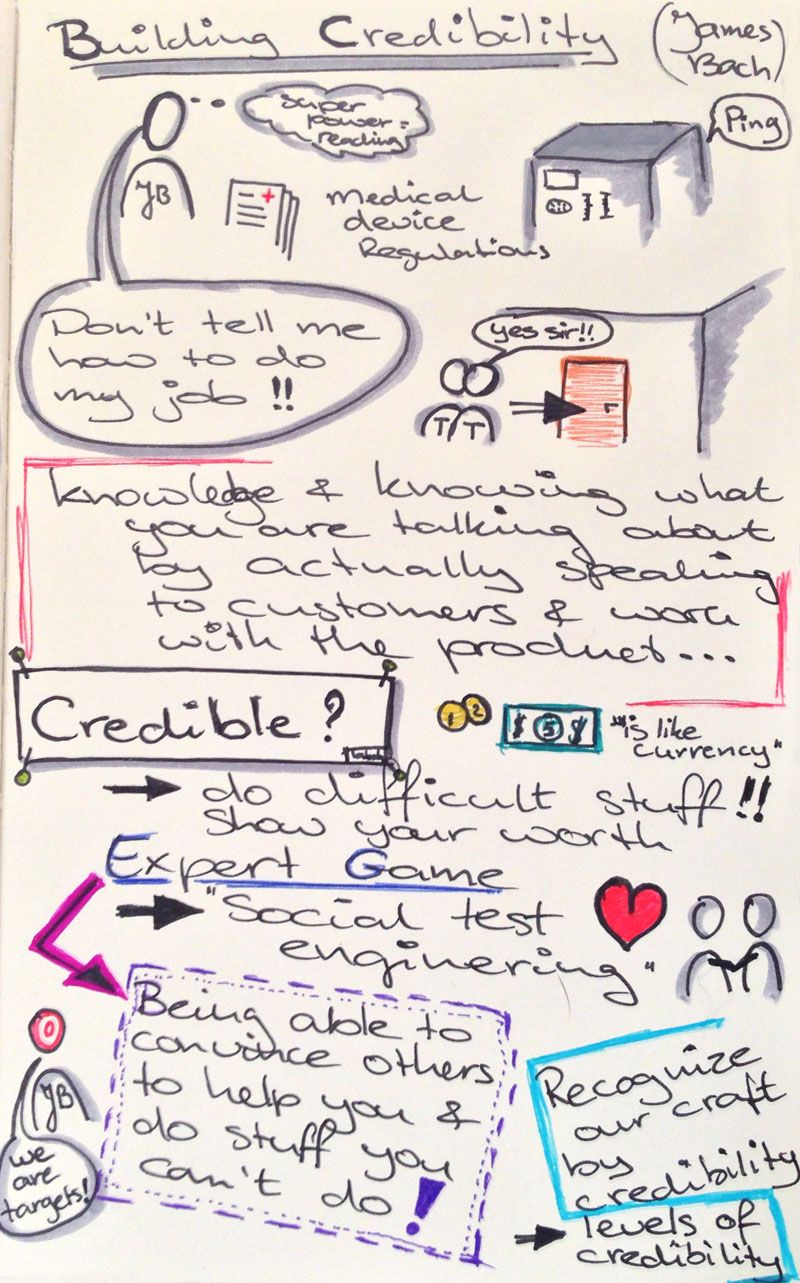 Building Credibility
(James
Bach)
super
power:
reading
Ping
JB
medical
device
Regulations
Don't tell me
how to do
my job !!
yes sir!!
T T
knowledge & knowing what
you are talking about
by actually speaking
to customers & work
with the product...
Credible ?
1 2
$ 5 $
"is like
currency"
→ do difficult stuff!!
show your worth
Expert Game
→ "Social test
enginering"
Being able to
convince others
to help you &
do stuff you
can't do !
JB
we
are
targets!
Recognize
our craft
by
credibility
→ levels of
credibility